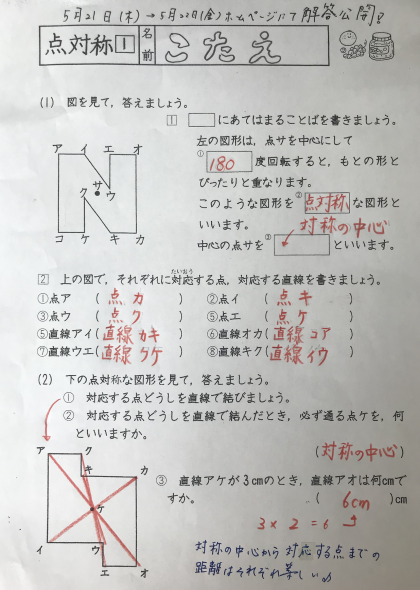 5月21日(木)→5月22日(金)ホームページにて解答公開!
点対称 1 名前 こたえ
(1) 図を見て,答えましょう。
1 □にあてはまることばを書きましょう。
左の図形は,点サを中心にして
① 180 度回転すると,もとの形と
ぴったりと重なります。
このような図形を ② 点対称 な図形と
いいます。
対称の中心
中心の点サを ③ といいます。
ア イ エ オ
ク サ ウ
コ ケ キ カ
2 上の図で,それぞれに対応する点,対応する直線を書きましょう。
たいおう
①点ア ( 点 カ ) ②点イ ( 点 キ )
③点ウ ( 点 ク ) ⑤点エ ( 点 ケ )
⑤直線アイ( 直線 カキ ) ⑥直線オカ( 直線 コア )
⑦直線ウエ( 直線 クケ ) ⑧直線キク( 直線 イウ )
(2) 下の点対称な図形を見て,答えましょう。
① 対応する点どうしを直線で結びましょう。
② 対応する点どうしを直線で結んだとき,必ず通る点ケを,何
といいますか。
(対称の中心)
ア ク
キ カ
ケ
イ ウ
エ オ
③ 直線アケが3cmのとき,直線アオは何cmで
すか。 ( 6cm )cm
3 × 2 = 6
対称の中心から対応する点までの
距離はそれぞれ等しい